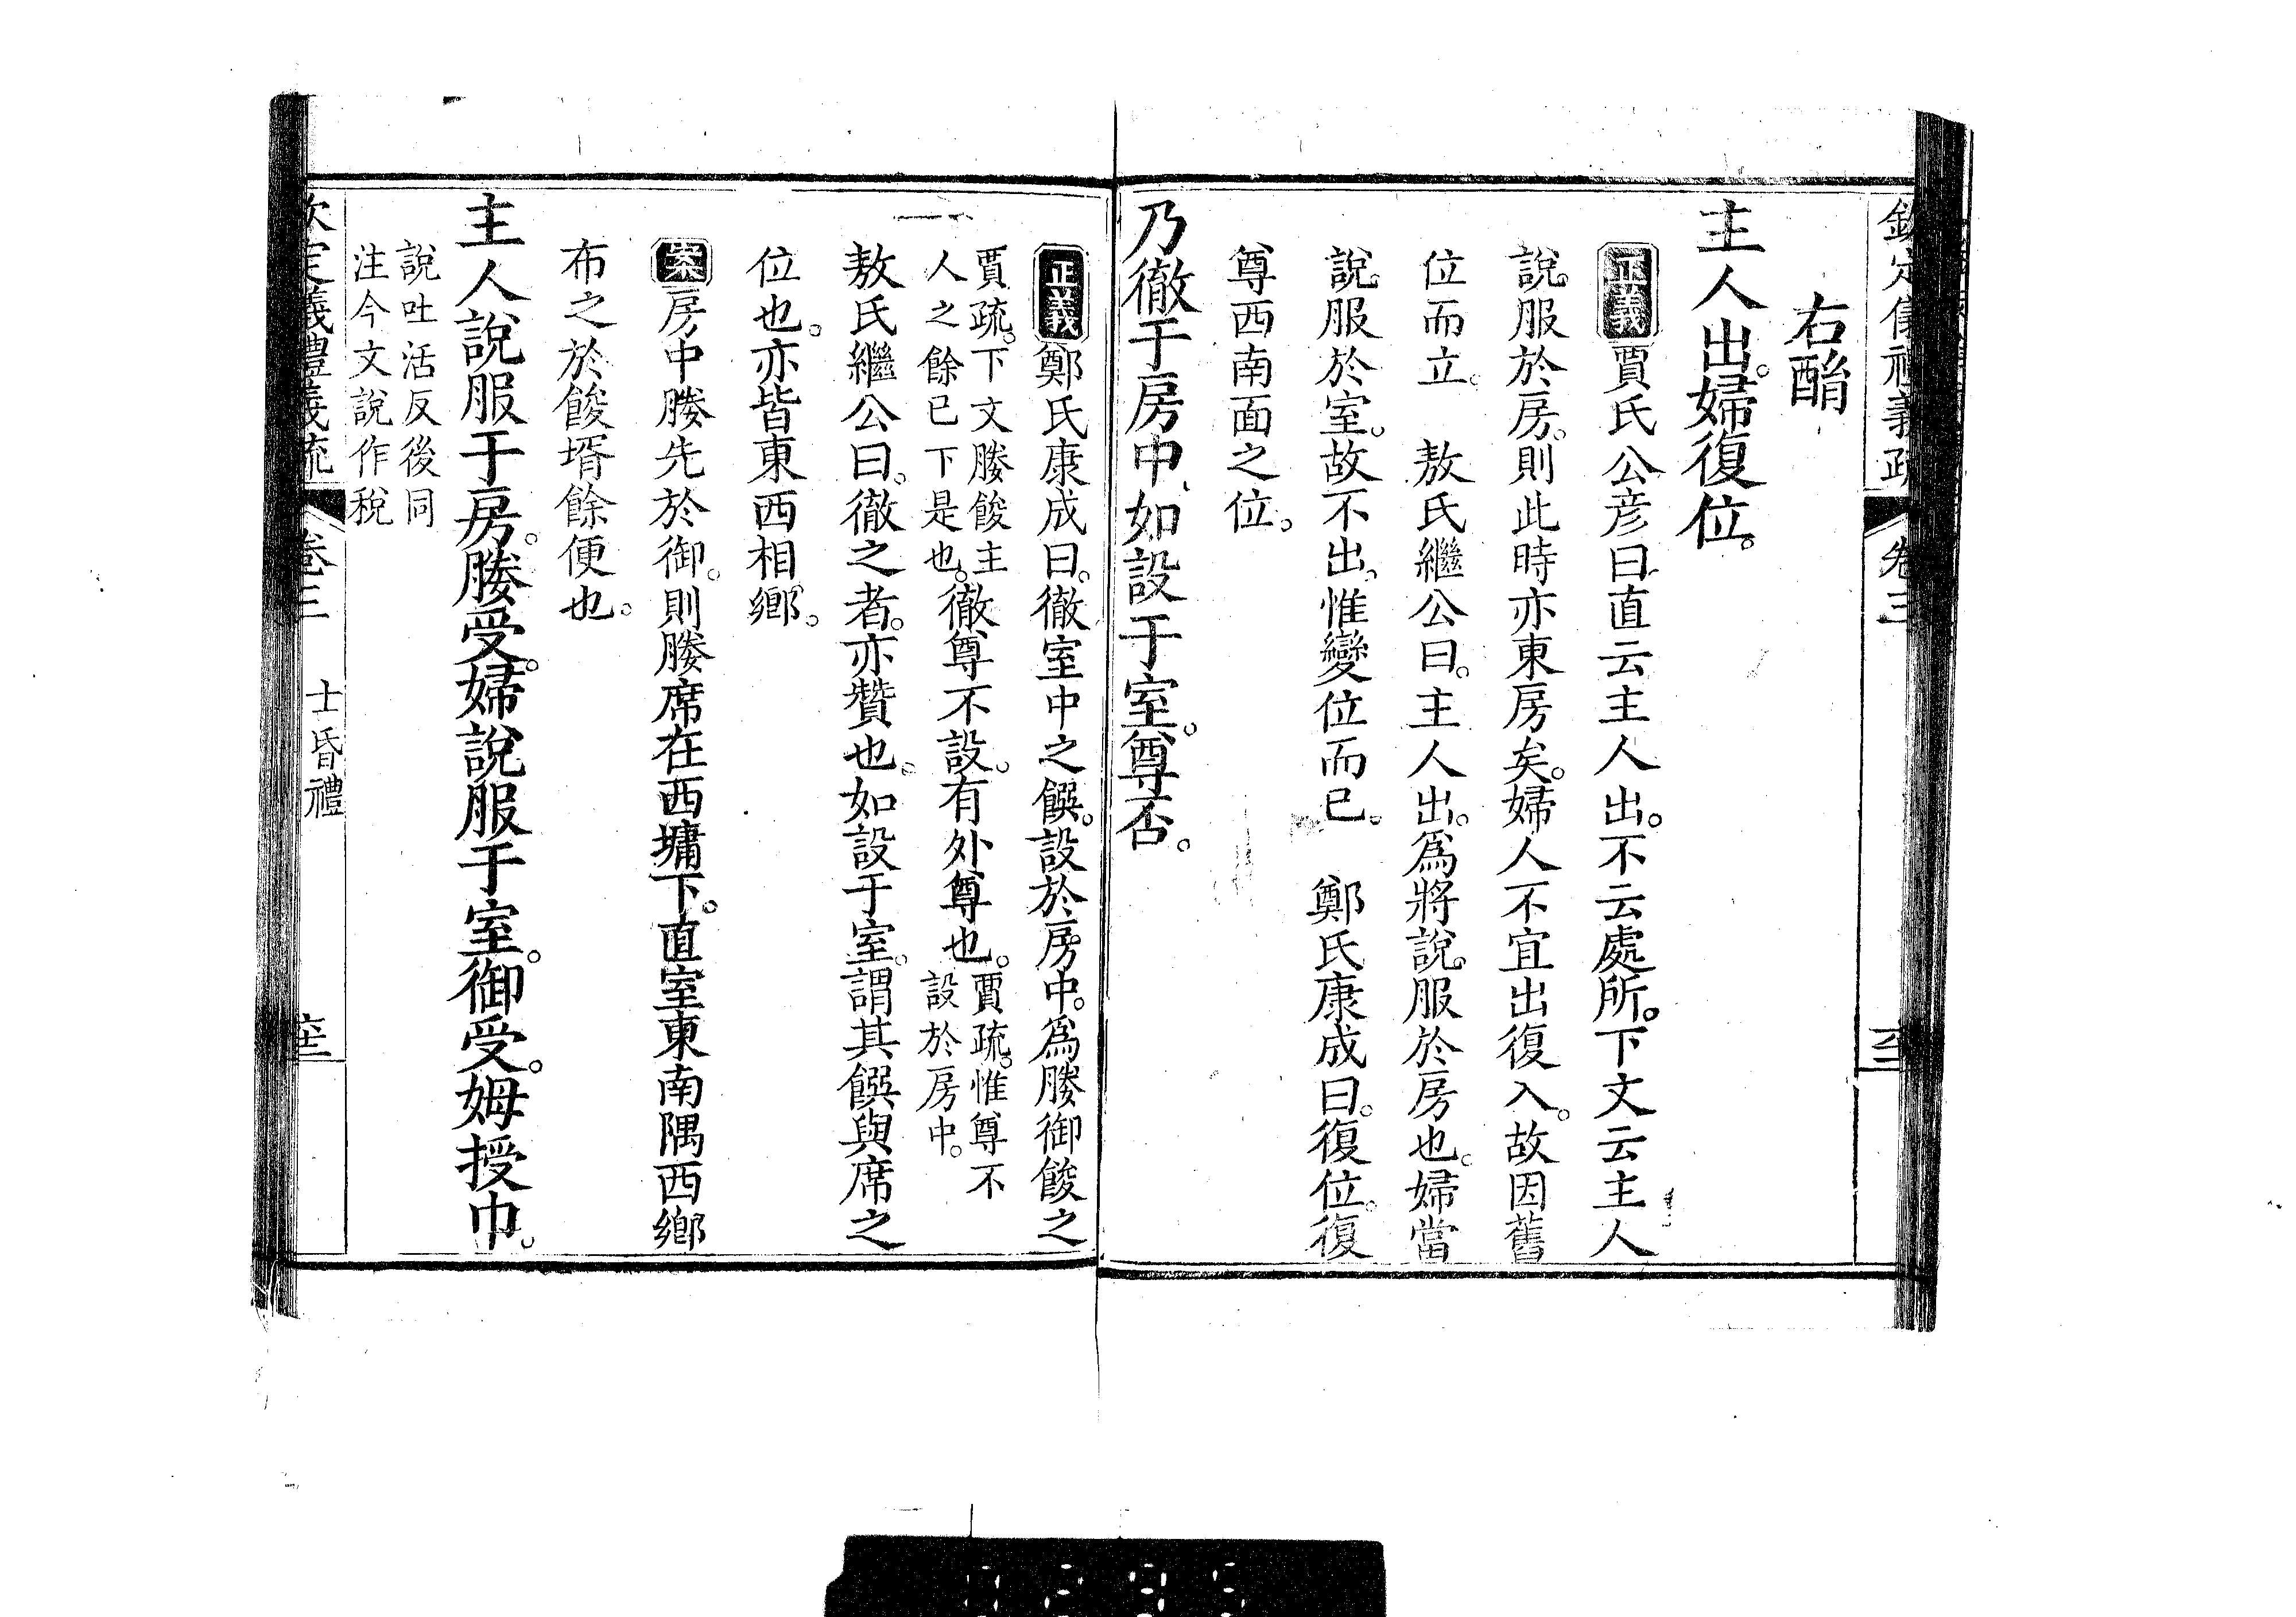 欽定儀禮義疏　卷三
右酳
主人出。婦復位。
正義賈氏公彦曰直云主人出。不云處所。下文云主人
說服於房。則此時亦東房矣。婦人不宜出復入。故因舊
位而立。　敖氏繼公曰。主人出。爲將說服於房也。婦當
說服於室。故不出。惟變位而已。　鄭氏康成曰。復位。復
尊西南面之位。
乃徹于房中、如設于室。尊否。
正義鄭氏康成曰。徹室中之饌。設於房中。爲媵御餕之
賈疏。下文媵餕主
人之餘已下是也。徹尊不設。有外尊也。賈疏。惟尊不
設於房中。
敖氏繼公曰。徹之者。亦贊也。如設于室。謂其饌與席之
位也。亦皆東西相鄉。
案房中媵先於御。則媵席在西墉下。直室東南隅西鄉
布之於餕壻餘便也。
主人說服于房。媵受。婦說服于室。御受。姆授巾。
說吐活反後同
注今文說作稅
欽定儀禮義疏　卷三　士昏禮